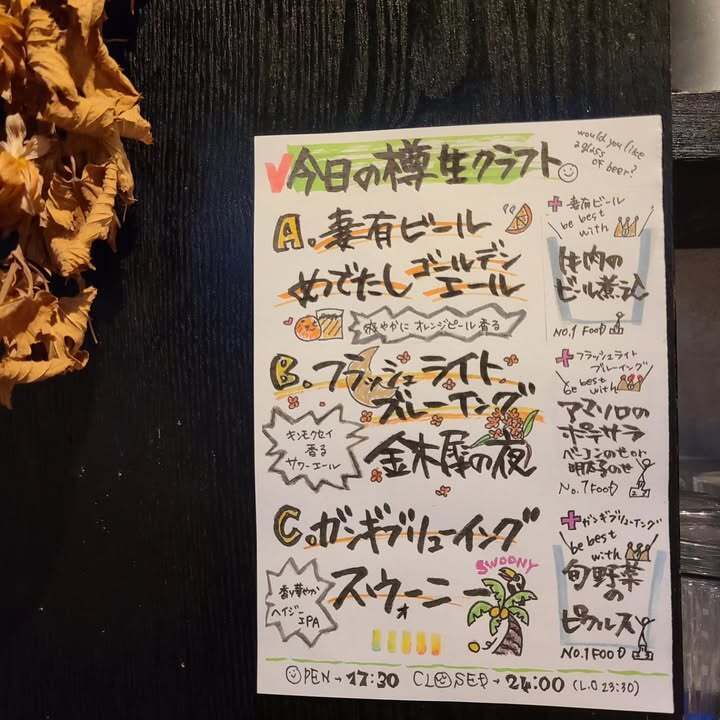 今日の樽生クラフト
would you like
a glass
of beer?
A. 妻有ビール
めでたし ゴールデン
エール
爽やかに オレンジピール香る
B. フラッシュライト
ブルーイング
金木犀の夜
キンモクセイ
香る
サワーエール
C. ガンギブリューイング
スウォーニー
SWOONY
香り華やか
ヘイジー
IPA
+ 妻有ビール
be best
with
牛肉の
ビール煮込
NO.1 FOOD
+ フラッシュライト
ブルーイング
be best
with
ポテサラ
ベーコンのせor
明太のせ
No.1 FOOD
+ ガンギブリューイング
be best
with
旬野菜
の
ピクルス
NO.1 FOOD
OPEN → 17:30 CLOSED → 24:00 (L.O 23:30)